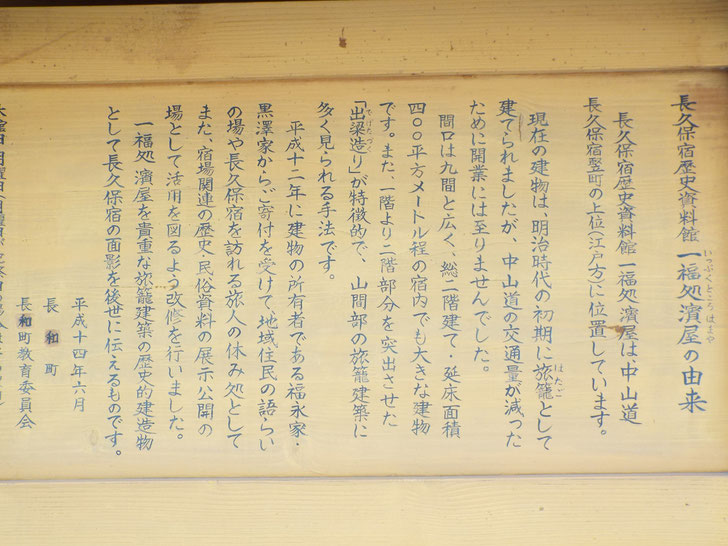 長久保宿歴史資料館 一福処濱屋の由来
いっぷくところはまや
長久保宿歴史資料館一福処濱屋は、中山道
長久保宿竪町の上位(江戸方)に位置しています。
現在の建物は、明治時代の初期に旅籠として
はたご
建てられましたが、中山道の交通量が減った
ために開業には至りませんでした。
間口は九間と広く、総二階建て・延床面積
四〇〇平方メートル程の宿内でも大きな建物
です。また、一階より二階部分を突出させた
「出梁造り」が特徴的で、山間部の旅籠建築に
でばりづくり
多く見られる手法です。
平成十二年に建物の所有者である福永家・
黒澤家からご寄付を受けて、地域住民の語らい
の場や長久保宿を訪れる旅人の休み処として
また、宿場関連の歴史・民俗資料の展示・公開の
場として活用を図るよう改修を行いました。
一福処濱屋を貴重な旅籠建築の歴史的建造物
として長久保宿の面影を後世に伝えるものです。
平成十四年六月
長和町
長和町教育委員会